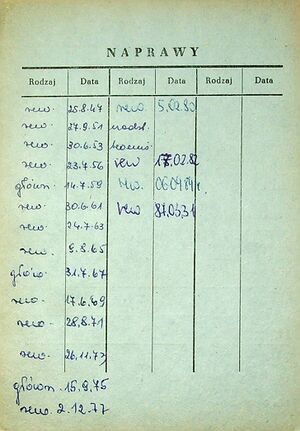 NAPRAWY
Rodzaj Data Rodzaj Data Rodzaj Data
rew. 25.8.47 rew. 5.02.80
rew. 27.9.51 nadst.
rew. 30.6.53
rew. 23.7.56 rew 17.02.82
główn. 14.7.59 rew. 060484r
rew. 30.6.61 rew 87.03.31
rew. 24.7.63
rew. 9.8.65
główn. 31.7.67
rew. 17.6.69
rew. 28.8.71
rew. 26.11.73
główn. 15.9.75
rew. 2.12.77